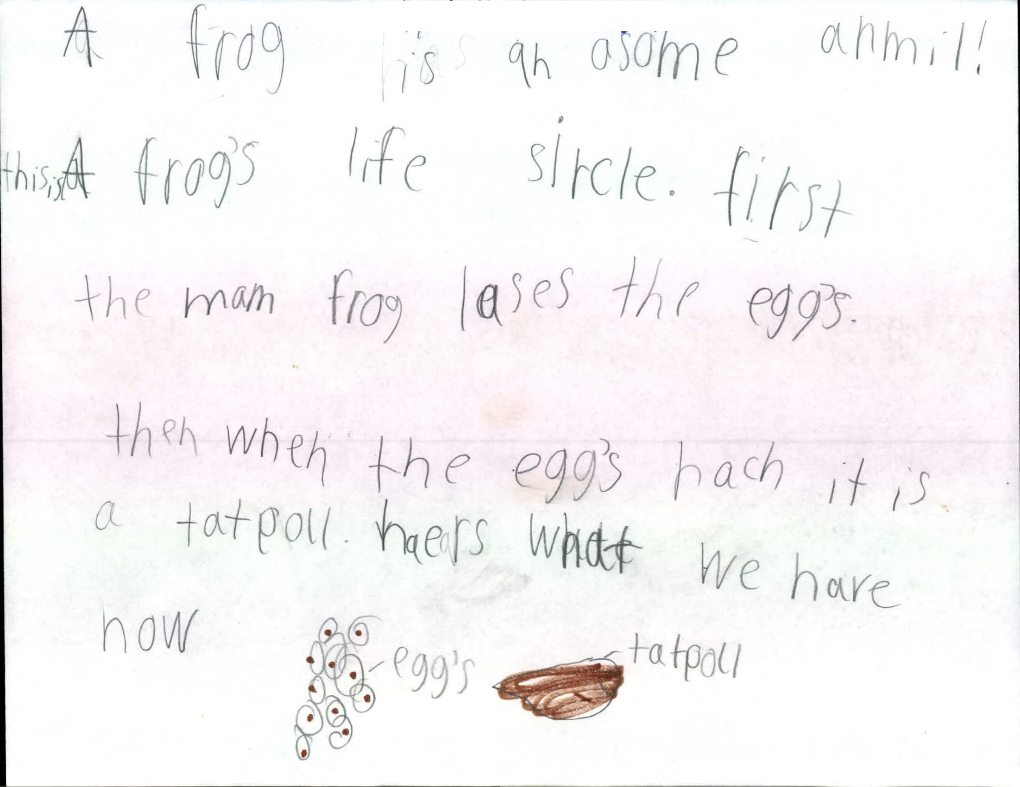 A frog is an asome anmil!
this is A frog's life sircle. first
the mam frog lases the egg's.
then when the egg's hach it is
a tatpoll. haers what we have
now
egg's
tatpoll